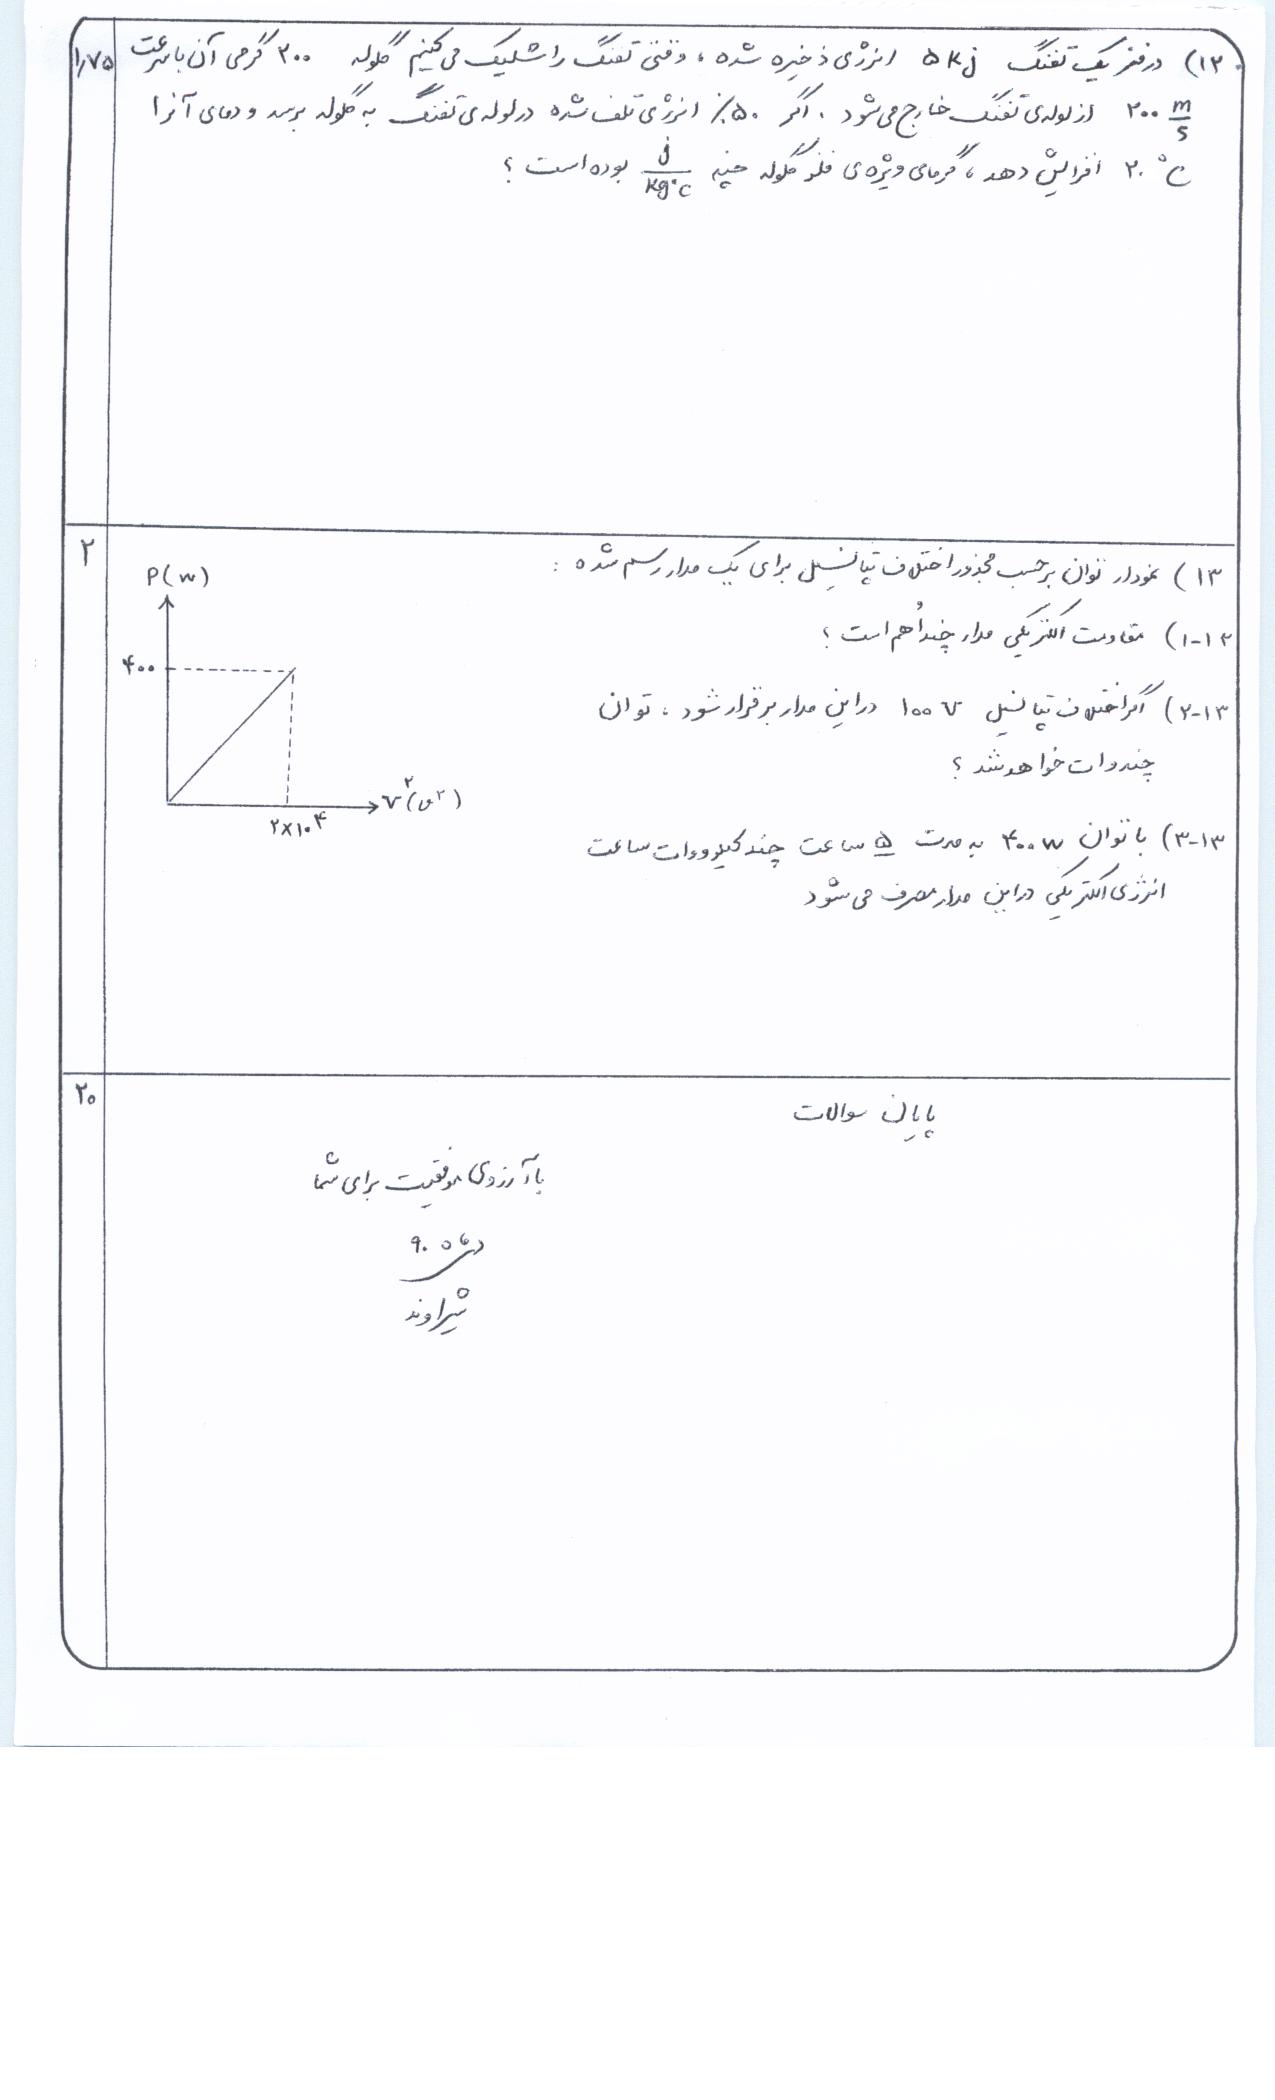 ۱۲) در فنر یک تفنگ ۵ kj انرژی ذخیره شده ، وقتی تفنگ را شلیک می کنیم گلوله ۲۰۰ گرمی آن با سرعت
۱٫۷۵
۲۰۰ m/s از لوله ی تفنگ خارج می شود . اگر ۵۰٪ انرژی تلف شده در لوله ی تفنگ به گلوله برسد و دمای آنرا
۲۰ °C افزایش دهد ، گرمای ویژه ی فلز گلوله چند j/kg°c بوده است ؟
۲
۱۳) نمودار توان برحسب مجذور اختلاف پتانسیل برای یک مدار رسم شده :
P(w)
۴۰۰
V²(v²)
۲×۱۰⁴
۱-۱۳) مقاومت الکتریکی مدار چند اُهم است ؟
۲-۱۳) اگر اختلاف پتانسیل ۱۰۰ V در این مدار برقرار شود ، توان
چند وات خواهد شد ؟
۳-۱۳) با توان ۴۰۰ w به مدت ۵ ساعت چند کیلووات ساعت
انرژی الکتریکی در این مدار مصرف می شود
۲۰
پایان سوالات
با آرزوی موفقیت برای شما
دی ماه ۹۰
شیراوند